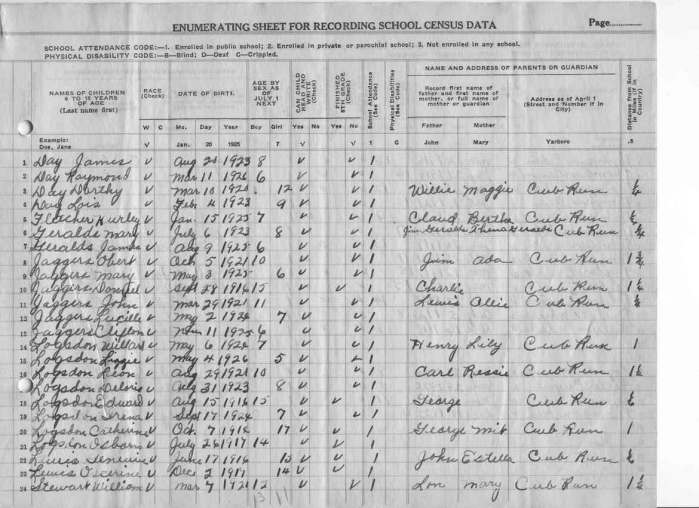 ENUMERATING SHEET FOR RECORDING SCHOOL CENSUS DATA Page
SCHOOL ATTENDANCE CODE:—1. Enrolled in public school; 2. Enrolled in private or parochial school; 3. Not enrolled in any school.
PHYSICAL DISABILITY CODE:—B—Blind; D—Deaf C—Crippled.
NAMES OF CHILDREN 6 TO 18 YEARS OF AGE (Last name first)
RACE (Check)
DATE OF BIRTH.
AGE BY SEX AS OF JULY 1 NEXT
CAN CHILD READ AND WRITE (Check)
FINISHED 8TH GRADE (Check)
School Attendance (See Code)
Physical Disabilities (See Code)
NAME AND ADDRESS OF PARENTS OR GUARDIAN
Record first name of father and first name of mother, or full name of mother or guardian
Address as of April 1 (Street and Number if in City)
Distance from School in Miles (if in Country)
W C Mo. Day Year Boy Girl Yes No Yes No Father Mother
Example: Doe, Jane V Jan. 20 1925 7 V V 1 C John Mary Yarboro .5
1 Day James V Aug 1923 8 V V 1
2 Day Raymond V Mar 11 1926 6 V V 1
3 Day Dorthy V Mar 10 12 V V 1 Willie Maggie Cub Run
4 Day Lois V Feb 4 1923 9 V V 1
5 Fletcher Hurley V Jan. 15 1925 7 V V 1 Claud Bertha Cub Run
6 Geralds Mary V July 6 1923 8 V V 1 Jim Geralds Cub Run
7 Geralds James V Aug 9 1925 6 V V 1
8 Jaggers Obert V Oct 5 1921 10 V V 1 Jim Ada Cub Run
9 Jaggers Mary V May 3 1925 6 V V 1
10 Jaggers V Sept 28 1916 15 V V 1 Charlie Cub Run
11 Jaggers John V Mar 29 1921 11 V V 1 Lewis Allie Cub Run
12 Jaggers Lucille V May 2 1924 7 V V 1
13 Jaggers Clifton V 11 1925 6 V V 1
14 Logsdon Willard V May 6 1924 7 V V 1 Henry Lily Cub Run 1
15 Logsdon Lizzie V May 4 1926 5 V V 1
16 Logsdon Leon V Aug 29 1921 10 V V 1 Carl Ressie Cub Run
17 Logsdon V July 31 1923 8 V V 1
18 Logsdon Edward V Aug 15 1916 15 V V 1 George Cub Run
19 Logsdon Irena V Sept 17 1924 7 V V 1
20 Logsdon Catherine V Oct. 7 1914 17 V V 1 George Mit Cub Run 1
21 Logsdon Osborn V July 26 1917 14 V V 1
22 Lewis V June 17 1916 15 V V 1 John Estella Cub Run
23 Lewis V Dec 2 1917 14 V V 1
24 Stewart William V Mar 7 12 V V 1 Lon Mary Cub Run
13 11